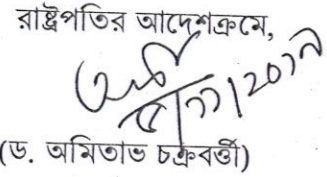 রাষ্ট্রপতির আদেশক্রমে,
(ড. অমিতাভ চক্রবর্ত্তী)